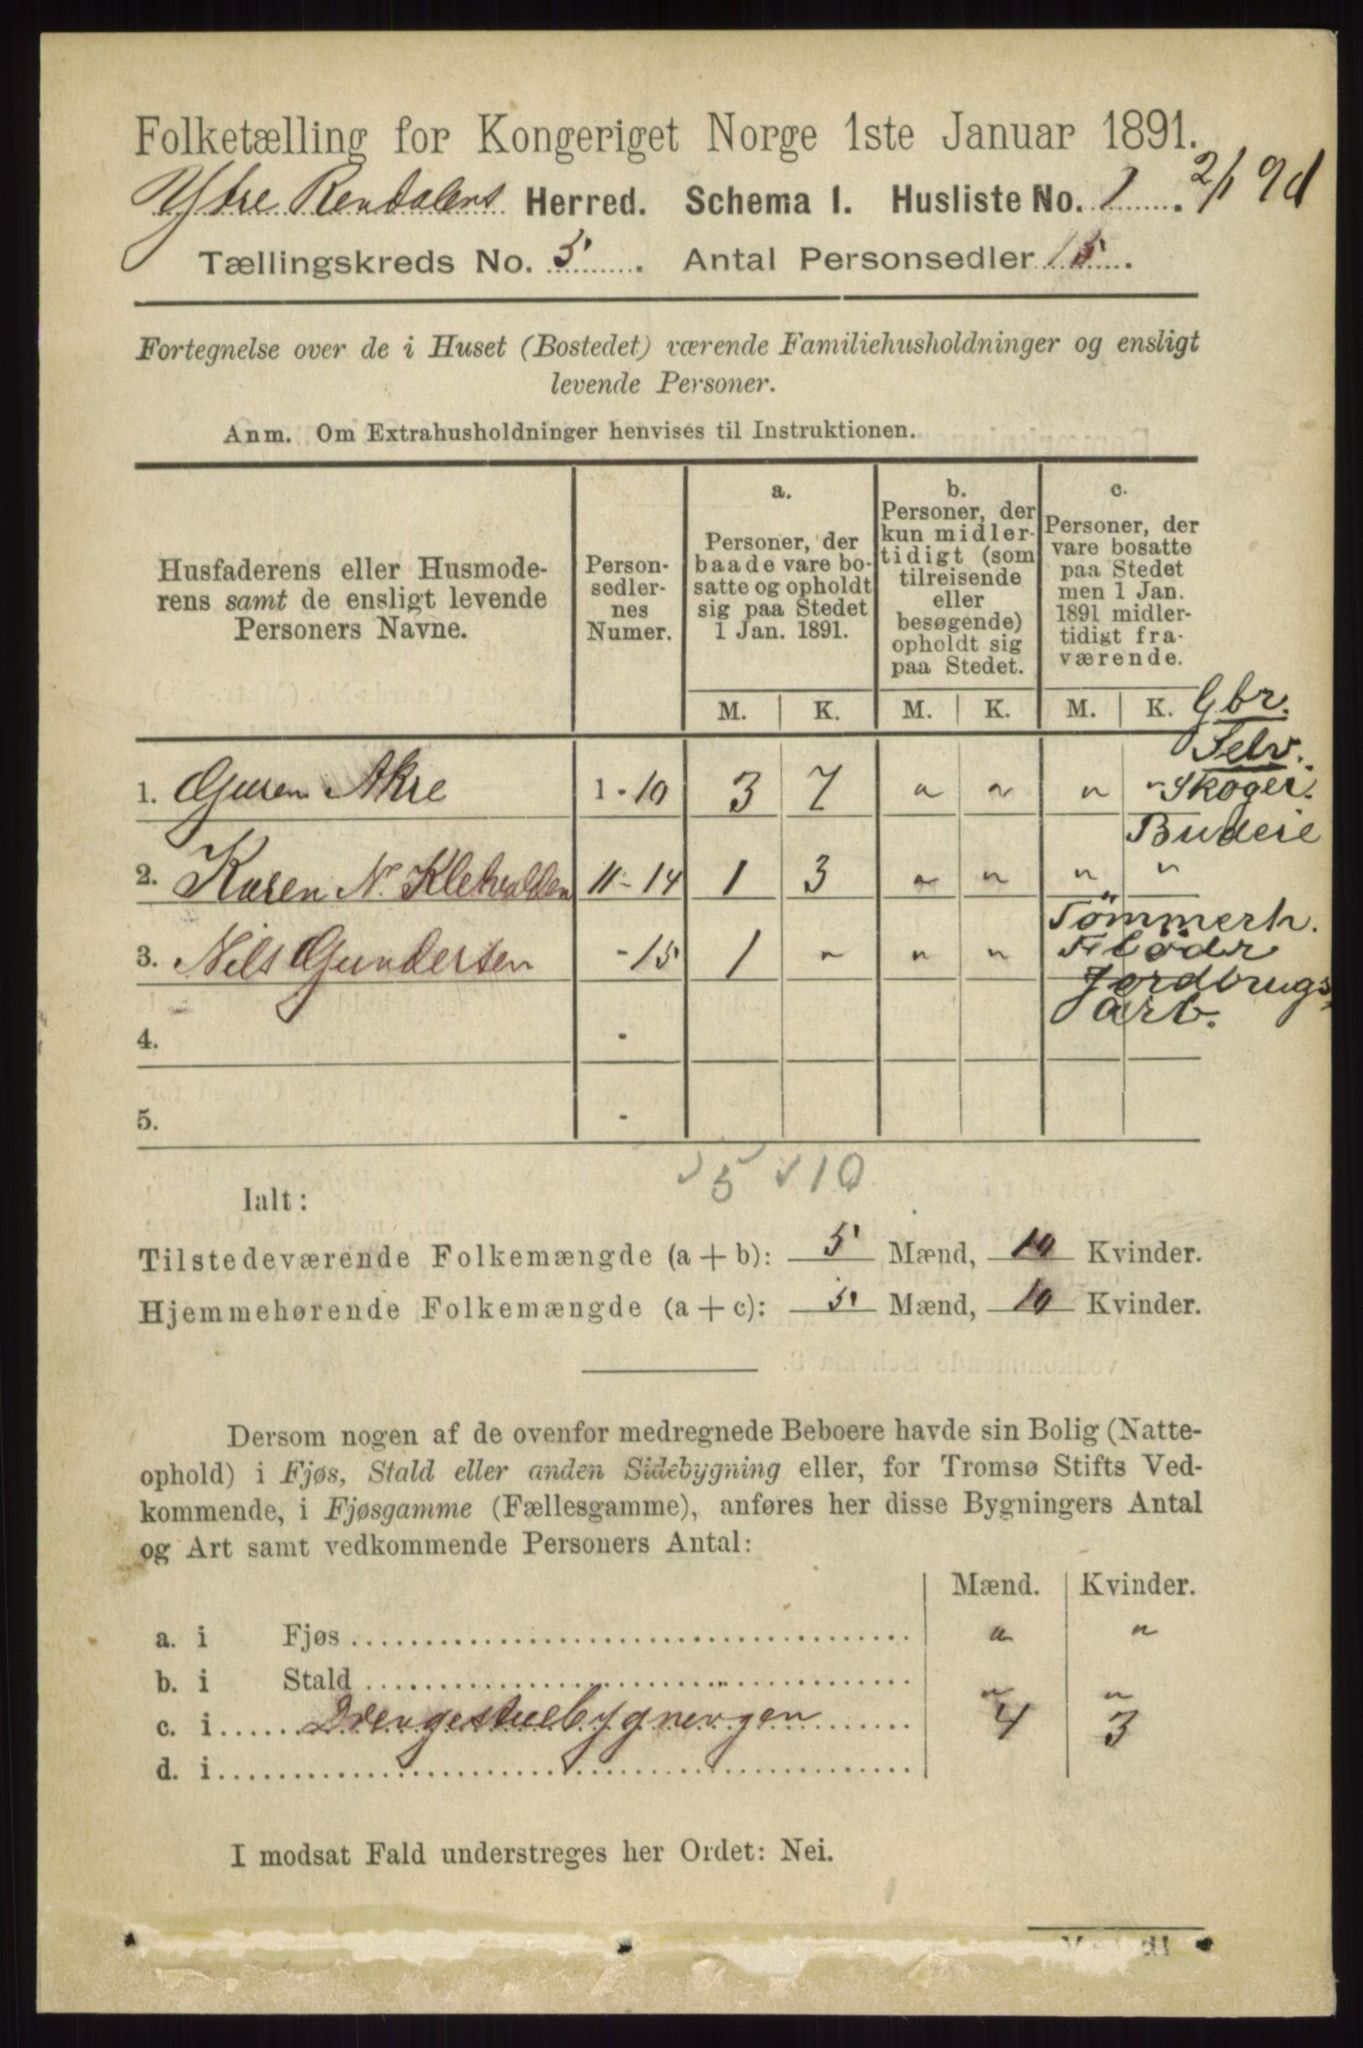 Folketælling for Kongeriget Norge 1ste Januar 1891.
Ytre Rendalens Herred. Schema 1. Husliste No. 1. 2/1 91
Tællingskreds No. 5. Antal Personsedler 15.
Fortegnelse over de i Huset (Bostedet) værende Familiehusholdninger og ensligt
levende Personer.
Anm. Om Extrahusholdninger henvises til Instruktionen.
Husfaderens eller Husmode-
rens samt de ensligt levende
Personers Navne.
Person-
sedler-
nes
Numer.
a.
Personer, der
baade vare bo-
satte og opholdt
sig paa Stedet
1 Jan. 1891.
b.
Personer, der
kun midler-
tidigt (som
tilreisende
eller
besøgende)
opholdt sig
paa Stedet.
c.
Personer, der
vare bosatte
paa Stedet
men 1 Jan.
1891 midler-
tidigt fra-
værende.
M. K. M. K. M. K. Gbr.
Selv.
1. Guren Akre 1 - 10 3 7 " " " " Skoger.
Budeie
2. Karen N. 11 - 14 1 3 " " " "
Tömmerh.
3. Nils Gundersen - 15 1 " " " Flödr
Jordbrugs
arb.
4. -
5. -
5 10
Ialt:
Tilstedeværende Folkemængde (a + b): 5 Mænd, 10 Kvinder.
Hjemmehørende Folkemængde (a + c): 5 Mænd, 10 Kvinder.
Dersom nogen af de ovenfor medregnede Beboere havde sin Bolig (Natte-
ophold) i Fjøs, Stald eller anden Sidebygning eller, for Tromsø Stifts Ved-
kommende, i Fjøsgamme (Fællesgamme), anføres her disse Bygningers Antal
og Art samt vedkommende Personers Antal:
Mænd. Kvinder.
a. i Fjøs " "
b. i Stald " "
c. i Drengestuebygningen 4 3
d. i
I modsat Fald understreges her Ordet: Nei.